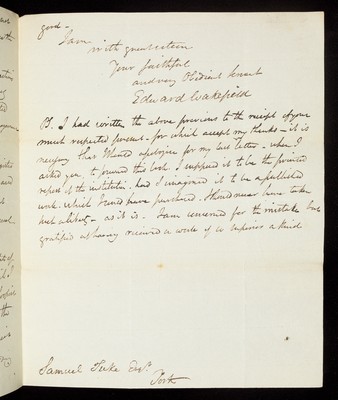 good -
I am
with great esteem
Your faithful
and very Obedient Servant
Edward Wakefield
PS. I had written the above previous to the receipt of your
most respected present - for which accept my thanks - it is
necessary that I should apologize for my last letter - when I
asked you to forward this book I supposed it to be the printed
report of the institution. had I imagined it to be a published
work - which I could have purchased - I should never have taken
such a liberty - as it is - I am concerned for the mistake but
gratified at having received a work of so superior a kind
Samuel Tuke Esqr.
York